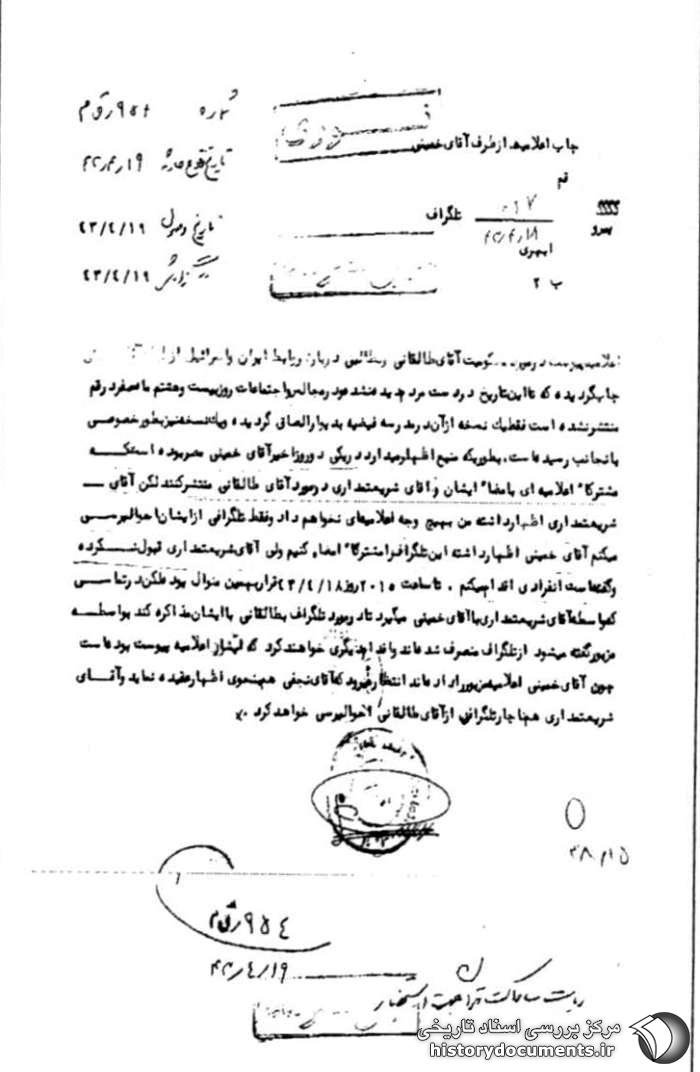 شماره ۹۵۴ / ق م
تاریخ وقوع حادثه ۴۳/۴/۱۹
تاریخ وصول ۴۳/۴/۱۹
گزارش ۴۳/۴/۱۹
فوری
چاپ اعلامیه از طرف آقای خمینی
قم
پیرو
۴۳/۴/۱۸
تلگراف
ب ۲
اعلامیه پیوست در مورد محکومیت آقای طالقانی و مطالبی درباره روابط ایران و اسرائیل از
چاپ گردیده که تا این تاریخ در دسترس مردم دیده نشده و در مجالس و اجتماعات روز بیست و هشتم ماه صفر در قم
منتشر نشده است فقط یک نسخه از آن در مدرسه فیضیه بدیوار الصاق گردیده و یک نسخه نیز بطور خصوصی
باینجانب رسیده است. بطوریکه منبع اظهار میدارد در یکی دو روز اخیر آقای خمینی مصر بوده است که
مشترکا" اعلامیه ای بامضاء ایشان و آقای شریعتمداری در مورد آقای طالقانی منتشر کنند لکن آقای
شریعتمداری اظهار داشته من بهیچ وجه اعلامیه‌ای نخواهم داد و فقط تلگرافی از ایشان احوالپرسی
میکنم آقای خمینی اظهار داشته این تلگراف را مشترکا" امضاء کنیم ولی آقای شریعتمداری قبول نکرده
و گفته است انفرادی اقدام میکنم . تا ساعت ۲۰۱۵ روز ۴۳/۴/۱۸ قرار بهمین منوال بود ولکن در تماسی
که واسطه آقای شریعتمداری با آقای خمینی میگیرد تا در مورد تلگراف بطالقانی با ایشان مذاکره کند بواسطه
مزبور گفته میشود از تلگراف منصرف شده‌اند و اقدام دیگری خواهند کرد که انتشار اعلامیه پیوست بوده است
چون آقای خمینی اعلامیه مزبور را داده‌اند انتظار میرود که آقای نجفی هم بنحوی اظهار عقیده نماید و آقای
شریعتمداری هم ناچار تلگرافی از آقای طالقانی احوالپرسی خواهد کرد .
۳۸/۱۵
۹۵۴ / ق م
۴۳/۴/۱۹
ریاست ساواک تهران جهت استحضار
مرکز بررسی اسناد تاریخی
historydocuments.ir